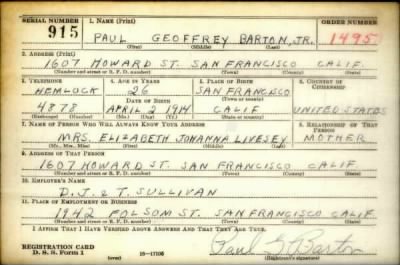 SERIAL NUMBER 1. NAME (Print) ORDER NUMBER
915 PAUL GEOFFREY BARTON, JR. 1495
(First) (Middle) (Last)
2. ADDRESS (Print)
1607 HOWARD ST. SAN FRANCISCO CALIF.
(Number and street or R. F. D. number) (Town) (County) (State)
3. TELEPHONE 4. AGE IN YEARS 5. PLACE OF BIRTH 6. COUNTRY OF CITIZENSHIP
HEMLOCK 26 SAN FRANCISCO
DATE OF BIRTH (Town or county)
4878 APRIL 2 1914 CALIF. UNITED STATES
(Exchange) (Number) (Mo.) (Day) (Yr.) (State or country)
7. NAME OF PERSON WHO WILL ALWAYS KNOW YOUR ADDRESS 8. RELATIONSHIP OF THAT PERSON
MRS. ELIZABETH JOHANNA LIVESEY MOTHER
(Mr., Mrs., Miss) (First) (Middle) (Last)
9. ADDRESS OF THAT PERSON
1607 HOWARD ST. SAN FRANCISCO CALIF.
(Number and street or R. F. D. number) (Town) (County) (State)
10. EMPLOYER'S NAME
D. J. & T. SULLIVAN
11. PLACE OF EMPLOYMENT OR BUSINESS
1942 FOLSOM ST. SAN FRANCISCO CALIF.
(Number and street or R. F. D. number) (Town) (County) (State)
I AFFIRM THAT I HAVE VERIFIED ABOVE ANSWERS AND THAT THEY ARE TRUE.
REGISTRATION CARD
D. S. S. Form 1 (over) Paul G. Barton
(Registrant's signature)